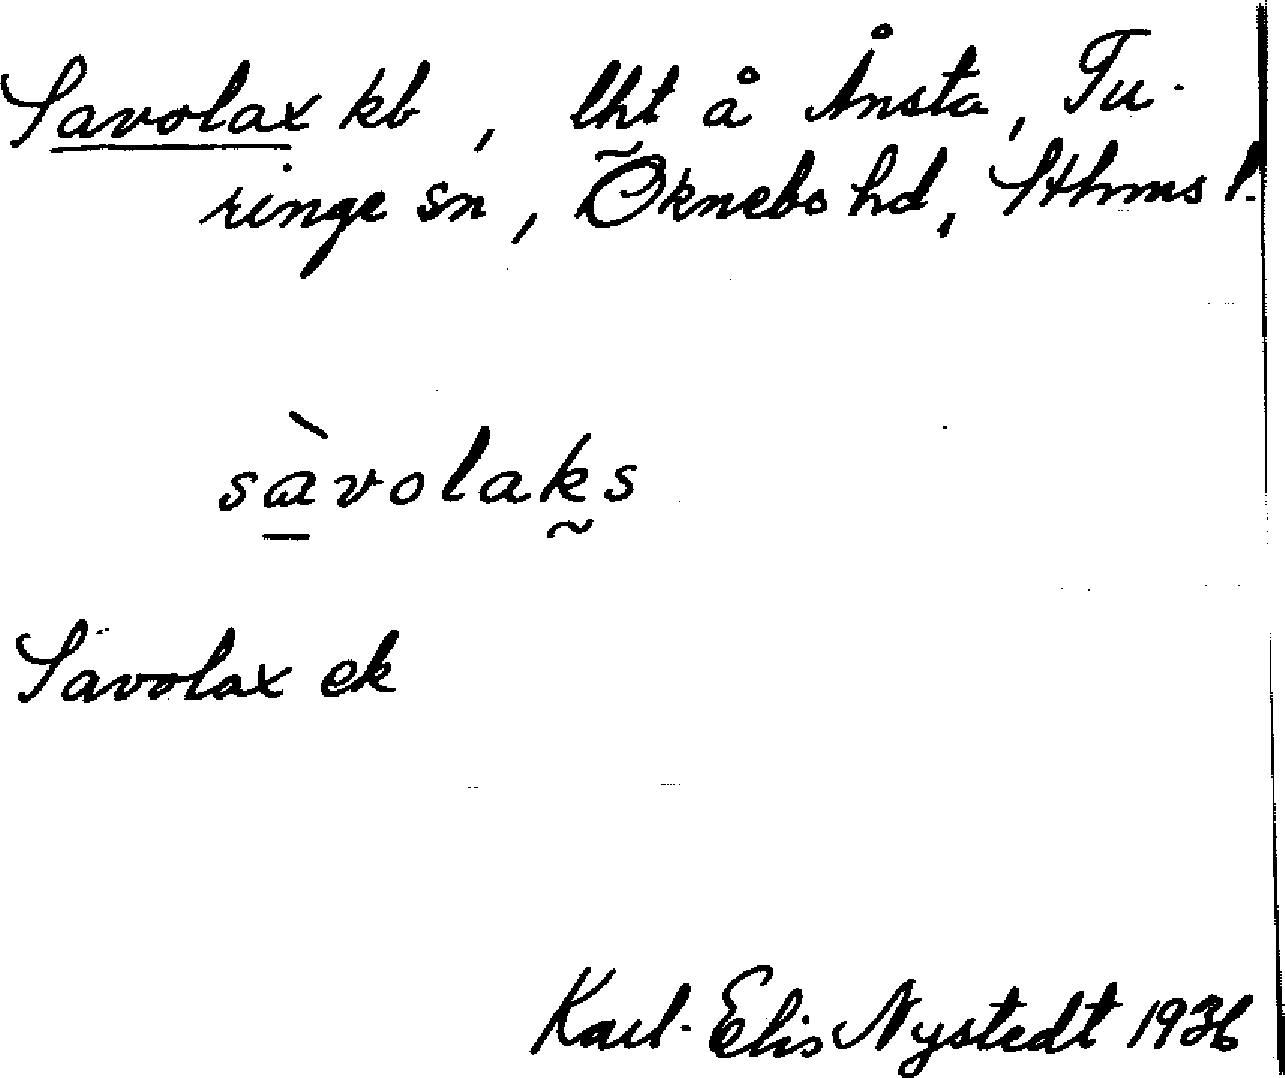 Savolax kb, lht å Ånsta, Tu-
ringe sn, Öknebo hd, Sthms l.
sàvolaks
Savolax ek
Karl-Elis Nystedt 1936